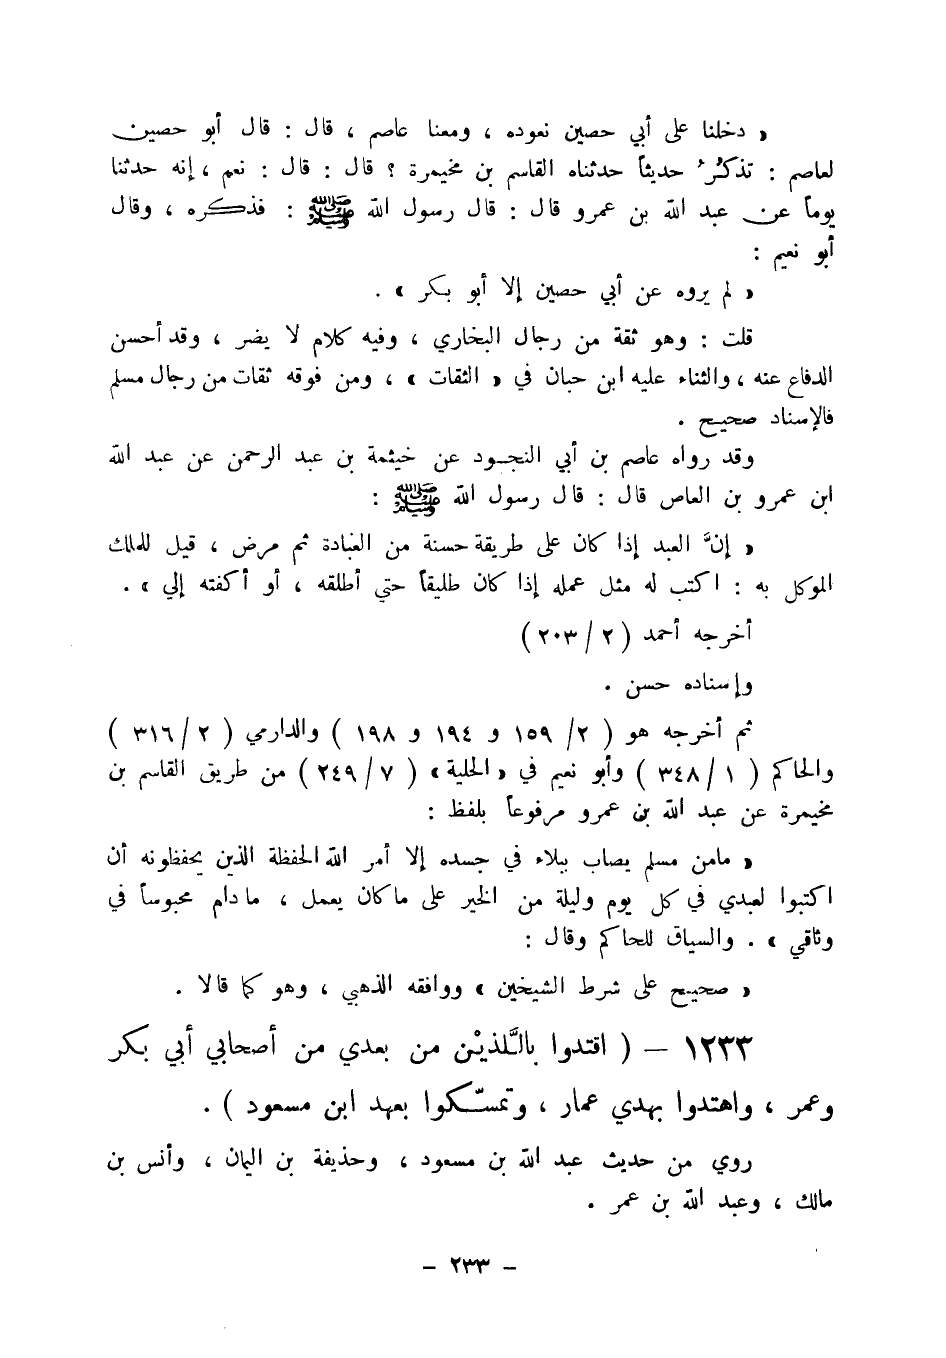 « دخلنا على أبي حصين نعوده ، ومعنا عاصم ، قال : قال أبو حصين
لعاصم : تذكُر حديثاً حدثناه القاسم بن مخيمرة ؟ قال : قال : نعم ، إنه حدثنا
يوماً عن عبد الله بن عمرو قال : قال رسول الله ﷺ : فذكره ، وقال
أبو نعيم :
« لم يروه عن أبي حصين إلا أبو بكر » .
قلت : وهو ثقة من رجال البخاري ، وفيه كلام لا يضر ، وقد أحسن
الدفاع عنه ، والثناء عليه ابن حبان في « الثقات » ، ومن فوقه ثقات من رجال مسلم
فالإسناد صحيح .
وقد رواه عاصم بن أبي النجود عن خيثمة بن عبد الرحمن عن عبد الله
ابن عمرو بن العاص قال : قال رسول الله ﷺ :
« إنَّ العبد إذا كان على طريقة حسنة من العبادة ثم مرض ، قيل للملك
الموكل به : اكتب له مثل عمله إذا كان طليقاً حتى أطلقه ، أو أكفته إلي » .
أخرجه أحمد ( ٢ / ٢٠٣ )
وإسناده حسن .
ثم أخرجه هو ( ٢/ ١٥٩ و ١٩٤ و ١٩٨ ) والدارمي ( ٢ / ٣١٦ )
والحاكم ( ١ / ٣٤٨ ) وأبو نعيم في « الحلية » ( ٧ / ٢٤٩ ) من طريق القاسم بن
مخيمرة عن عبد الله بن عمرو مرفوعاً بلفظ :
« مامن مسلم يصاب ببلاء في جسده إلا أمر الله الحفظة الذين يحفظونه أن
اكتبوا لعبدي في كل يوم وليلة من الخير على ماكان يعمل ، مادام محبوساً في
وثاقي » . والسياق للحاكم وقال :
« صحيح على شرط الشيخين » ووافقه الذهبي ، وهو كما قالا .
١٢٣٣ – ( اقتدوا باللَّذيْن من بعدي من أصحابي أبي بكر
وعمر ، واهتدوا بهدي عمار ، وتمسّكوا بعهد ابن مسعود ) .
روي من حديث عبد الله بن مسعود ، وحذيفة بن اليمان ، وأنس بن
مالك ، وعبد الله بن عمر .
- ٢٣٣ -